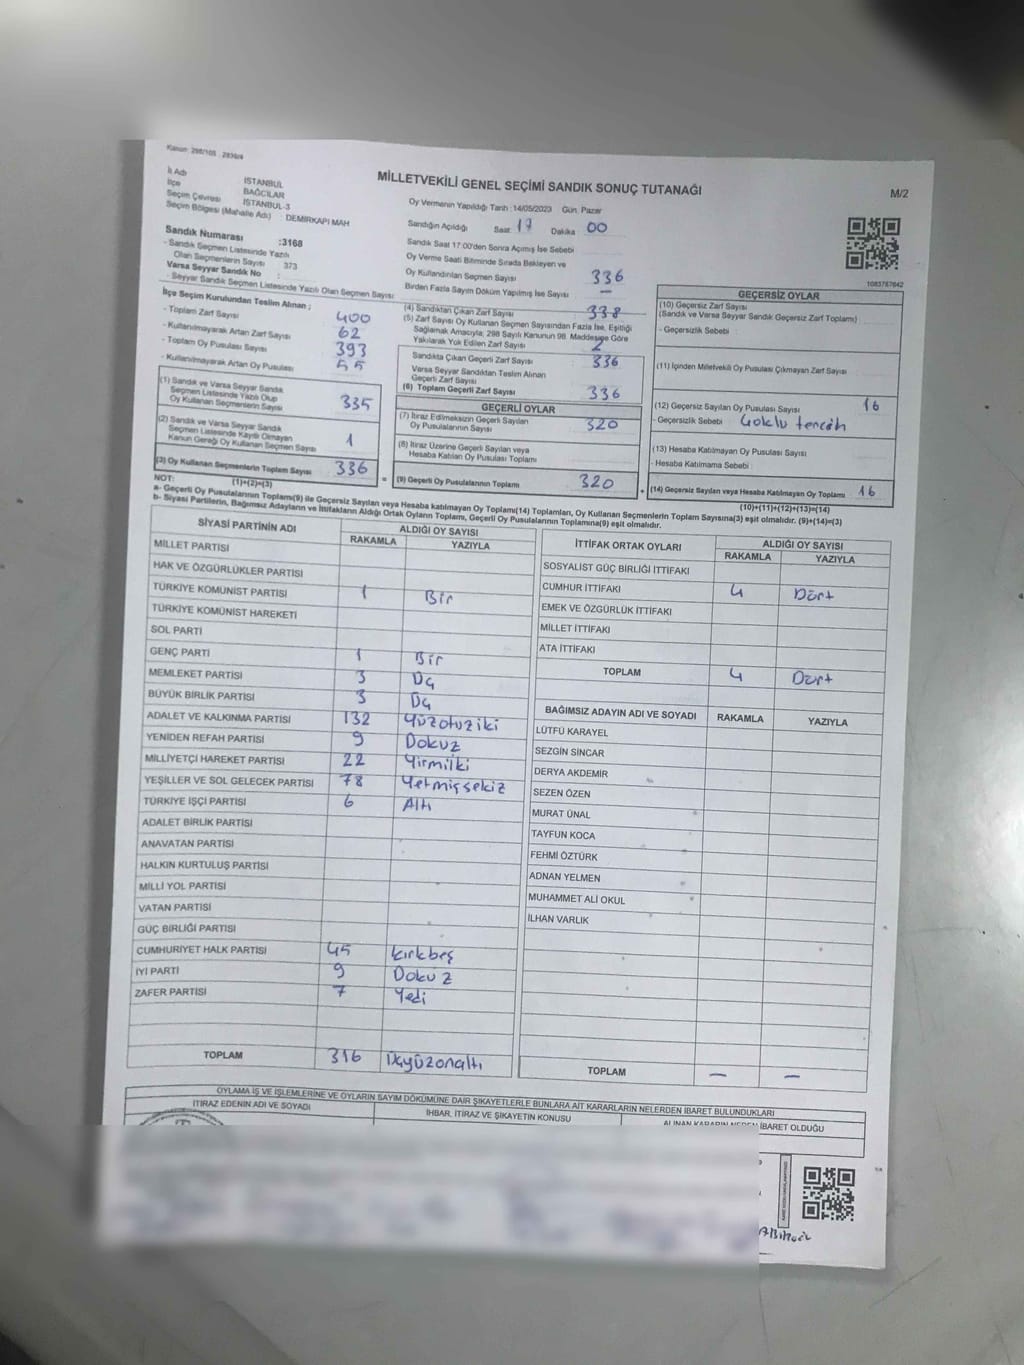 Kanun: 298/105
MİLLETVEKİLİ GENEL SEÇİMİ SANDIK SONUÇ TUTANAĞI
M/2
İl Adı İSTANBUL
İlçe BAĞCILAR
Seçim Çevresi İSTANBUL-3
Seçim Bölgesi (Mahalle Adı) : DEMİRKAPI MAH
Sandık Numarası :3168
- Sandık Seçmen Listesinde Yazılı
Olan Seçmenlerin Sayısı : 373
Varsa Seyyar Sandık No :
- Seyyar Sandık Seçmen Listesinde Yazılı Olan Seçmen Sayısı:
Oy Vermenin Yapıldığı Tarih :14/05/2023 Gün: Pazar
Sandığın Açıldığı Saat 17 Dakika 00
Sandık Saat 17:00'den Sonra Açılmış İse Sebebi
Oy Verme Saati Bitiminde Sırada Bekleyen ve
Oy Kullandırılan Seçmen Sayısı 336
Birden Fazla Sayım Döküm Yapılmış İse Sayısı —
1083787642
İlçe Seçim Kurulundan Teslim Alınan ;
- Toplam Zarf Sayısı 400
- Kullanılmayarak Artan Zarf Sayısı 62
- Toplam Oy Pusulası Sayısı 393
- Kullanılmayarak Artan Oy Pusulası 55
(1) Sandık ve Varsa Seyyar Sandık
Seçmen Listesinde Yazılı Olup
Oy Kullanan Seçmenlerin Sayısı 335
(2) Sandık ve Varsa Seyyar Sandık
Seçmen Listesinde Kayıtlı Olmayan
Kanun Gereği Oy Kullanan Seçmen Sayısı 1
(3) Oy Kullanan Seçmenlerin Toplam Sayısı 336
(1)+(2)=(3)
(4) Sandıktan Çıkan Zarf Sayısı 338
(5) Zarf Sayısı Oy Kullanan Seçmen Sayısından Fazla İse, Eşitliği
Sağlamak Amacıyla; 298 Sayılı Kanunun 98. Maddesine Göre
Yakılarak Yok Edilen Zarf Sayısı 2
Sandıkta Çıkan Geçerli Zarf Sayısı 336
Varsa Seyyar Sandıktan Teslim Alınan
Geçerli Zarf Sayısı
(6) Toplam Geçerli Zarf Sayısı 336
GEÇERLİ OYLAR
(7) İtiraz Edilmeksizin Geçerli Sayılan
Oy Pusulalarının Sayısı 320
(8) İtiraz Üzerine Geçerli Sayılan veya
Hesaba Katılan Oy Pusulası Toplamı
(9) Geçerli Oy Pusulalarının Toplamı 320
GEÇERSİZ OYLAR
(10) Geçersiz Zarf Sayısı
(Sandık ve Varsa Seyyar Sandık Geçersiz Zarf Toplamı)
- Geçersizlik Sebebi :
(11) İçinden Milletvekili Oy Pusulası Çıkmayan Zarf Sayısı
(12) Geçersiz Sayılan Oy Pusulası Sayısı 16
- Geçersizlik Sebebi : Çoklu tercih
(13) Hesaba Katılmayan Oy Pusulası Sayısı
- Hesaba Katılmama Sebebi :
(14) Geçersiz Sayılan veya Hesaba Katılmayan Oy Toplamı 16
(10)+(11)+(12)+(13)=(14)
NOT:
a- Geçerli Oy Pusulalarının Toplamı(9) ile Geçersiz Sayılan veya Hesaba katılmayan Oy Toplamı(14) Toplamları, Oy Kullanan Seçmenlerin Toplam Sayısına(3) eşit olmalıdır. (9)+(14)=(3)
b- Siyasi Partilerin, Bağımsız Adayların ve İttifakların Aldığı Ortak Oyların Toplamı, Geçerli Oy Pusulalarının Toplamına(9) eşit olmalıdır.
SİYASİ PARTİNİN ADI ALDIĞI OY SAYISI
RAKAMLA YAZIYLA
MİLLET PARTİSİ
HAK VE ÖZGÜRLÜKLER PARTİSİ
TÜRKİYE KOMÜNİST PARTİSİ 1 Bir
TÜRKİYE KOMÜNİST HAREKETİ
SOL PARTİ
GENÇ PARTİ 1 Bir
MEMLEKET PARTİSİ 3 Üç
BÜYÜK BİRLİK PARTİSİ 3 Üç
ADALET VE KALKINMA PARTİSİ 132 Yüzotuziki
YENİDEN REFAH PARTİSİ 9 Dokuz
MİLLİYETÇİ HAREKET PARTİSİ 22 Yirmiİki
YEŞİLLER VE SOL GELECEK PARTİSİ 78 Yetmişsekiz
TÜRKİYE İŞÇİ PARTİSİ 6 Altı
ADALET BİRLİK PARTİSİ
ANAVATAN PARTİSİ
HALKIN KURTULUŞ PARTİSİ
MİLLİ YOL PARTİSİ
VATAN PARTİSİ
GÜÇ BİRLİĞİ PARTİSİ
CUMHURİYET HALK PARTİSİ 45 Kırkbeş
İYİ PARTİ 9 Dokuz
ZAFER PARTİSİ 7 Yedi
TOPLAM 316 Üçyüzonaltı
İTTİFAK ORTAK OYLARI ALDIĞI OY SAYISI
RAKAMLA YAZIYLA
SOSYALİST GÜÇ BİRLİĞİ İTTİFAKI
CUMHUR İTTİFAKI 4 Dört
EMEK VE ÖZGÜRLÜK İTTİFAKI
MİLLET İTTİFAKI
ATA İTTİFAKI
TOPLAM 4 Dört
BAĞIMSIZ ADAYIN ADI VE SOYADI RAKAMLA YAZIYLA
LÜTFÜ KARAYEL
SEZGİN SİNCAR
DERYA AKDEMİR
SEZEN ÖZEN
MURAT ÜNAL
TAYFUN KOCA
FEHMİ ÖZTÜRK
ADNAN YELMEN
MUHAMMET ALİ OKUL
İLHAN VARLIK
TOPLAM — —
OYLAMA İŞ VE İŞLEMLERİNE VE OYLARIN SAYIM DÖKÜMÜNE DAİR ŞİKAYETLERLE BUNLARA AİT KARARLARIN NELERDEN İBARET BULUNDUKLARI
İTİRAZ EDENİN ADI VE SOYADI İHBAR, İTİRAZ VE ŞİKAYETİN KONUSU ALINAN KARARIN NEDEN İBARET OLDUĞU